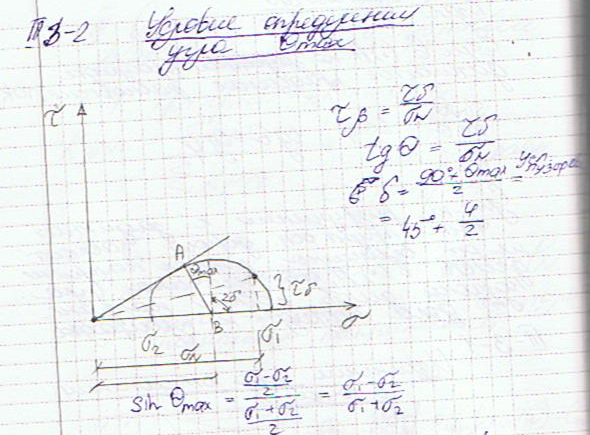 ПЗ-2 Условие определения
угла θmax
τβ = τδ/σN
tgθ = τδ/σN
δ = (90°+θmax)/2 =
= 45° + φ/2
τ
A
θmax
2δ
} τδ
B
σ2
σ1
σ
σN
sin θmax = ((σ1-σ2)/2)/((σ1+σ2)/2) = (σ1-σ2)/(σ1+σ2)